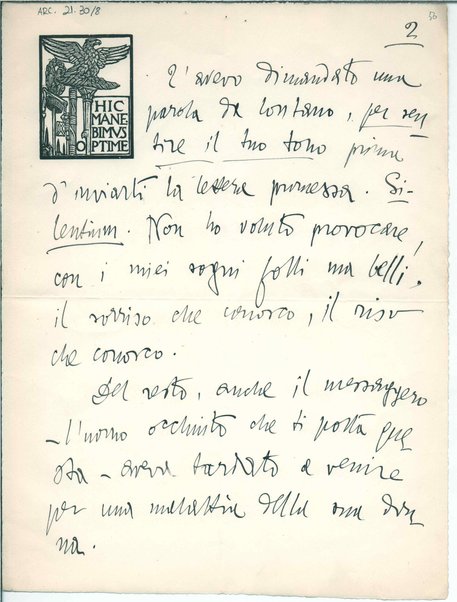 ARC. 21.30/8
56
2
HIC
MANE
BIMVS
OPTIME
T'avevo dimandato una
parola da lontano, per sen
tire il tuo tono prima
d'inviarti la lettera promessa. Si-
lentium. Non ho voluto provocare,
con i miei sogni folli ma belli,
il sorriso che conosco, il riso
che conosco.
Del resto, anche il messaggero
– l'uomo occhiuto che ti porta que
sta – aveva tardato a venire
per una malattia della sua don
na.